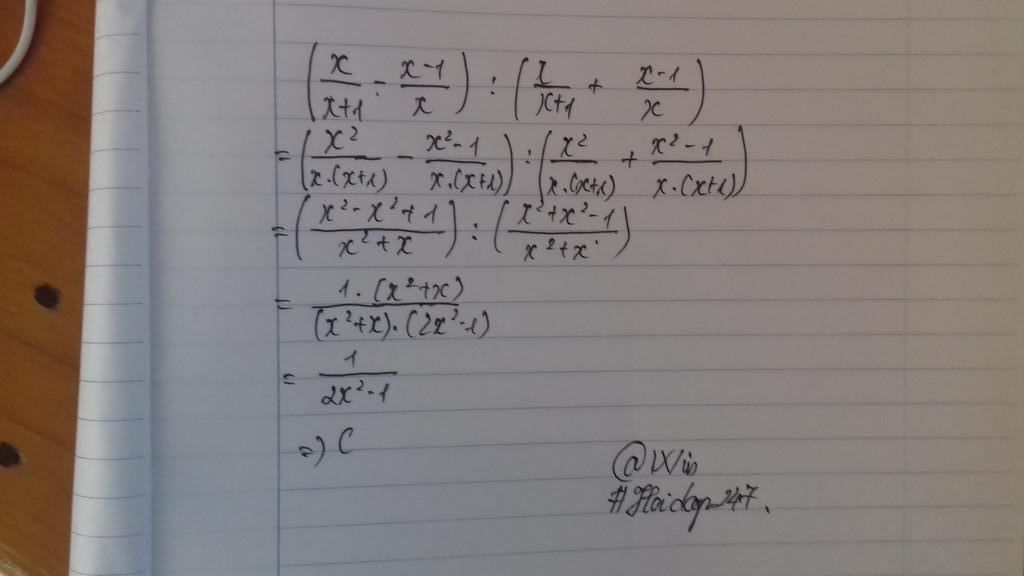 (x/(x+1) - (x-1)/x) : (x/(x+1) + (x-1)/x)
= (x²/(x.(x+1)) - (x²-1)/(x.(x+1))) : (x²/(x.(x+1)) + (x²-1)/(x.(x+1)))
= ((x²-x²+1)/(x²+x)) : ((x²+x²-1)/(x²+x))
= (1.(x²+x))/((x²+x).(2x²-1))
= 1/(2x²-1)
=) C
@Win
#Hoidap247.